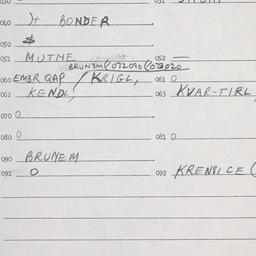 040 H BONDER
050 $
051 MUTNE 052
BRUNEM(072090(073020
060 EMBR QAP / KRIGL, 061 0
062 KENDL, 063 KVAR-TIRL
070 0
080 0 081 0
090 BRUNEM
091 0 092 KRENSICE (